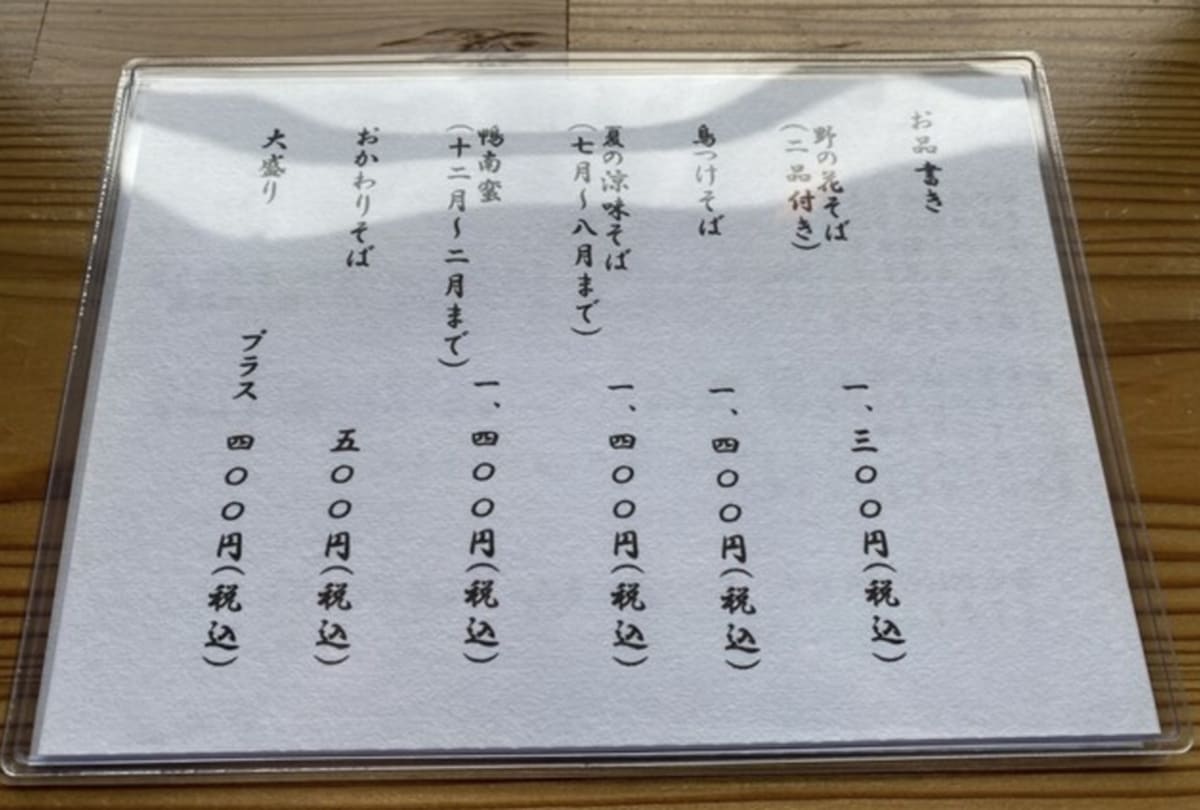 お品書き
野の花そば
(二品付き)
一、三〇〇円(税込)
鳥つけそば
一、四〇〇円(税込)
夏の涼味そば
(七月~八月まで)
一、四〇〇円(税込)
鴨南蛮
(十二月~二月まで)
一、四〇〇円(税込)
おかわりそば
五〇〇円(税込)
大盛り
プラス 四〇〇円(税込)